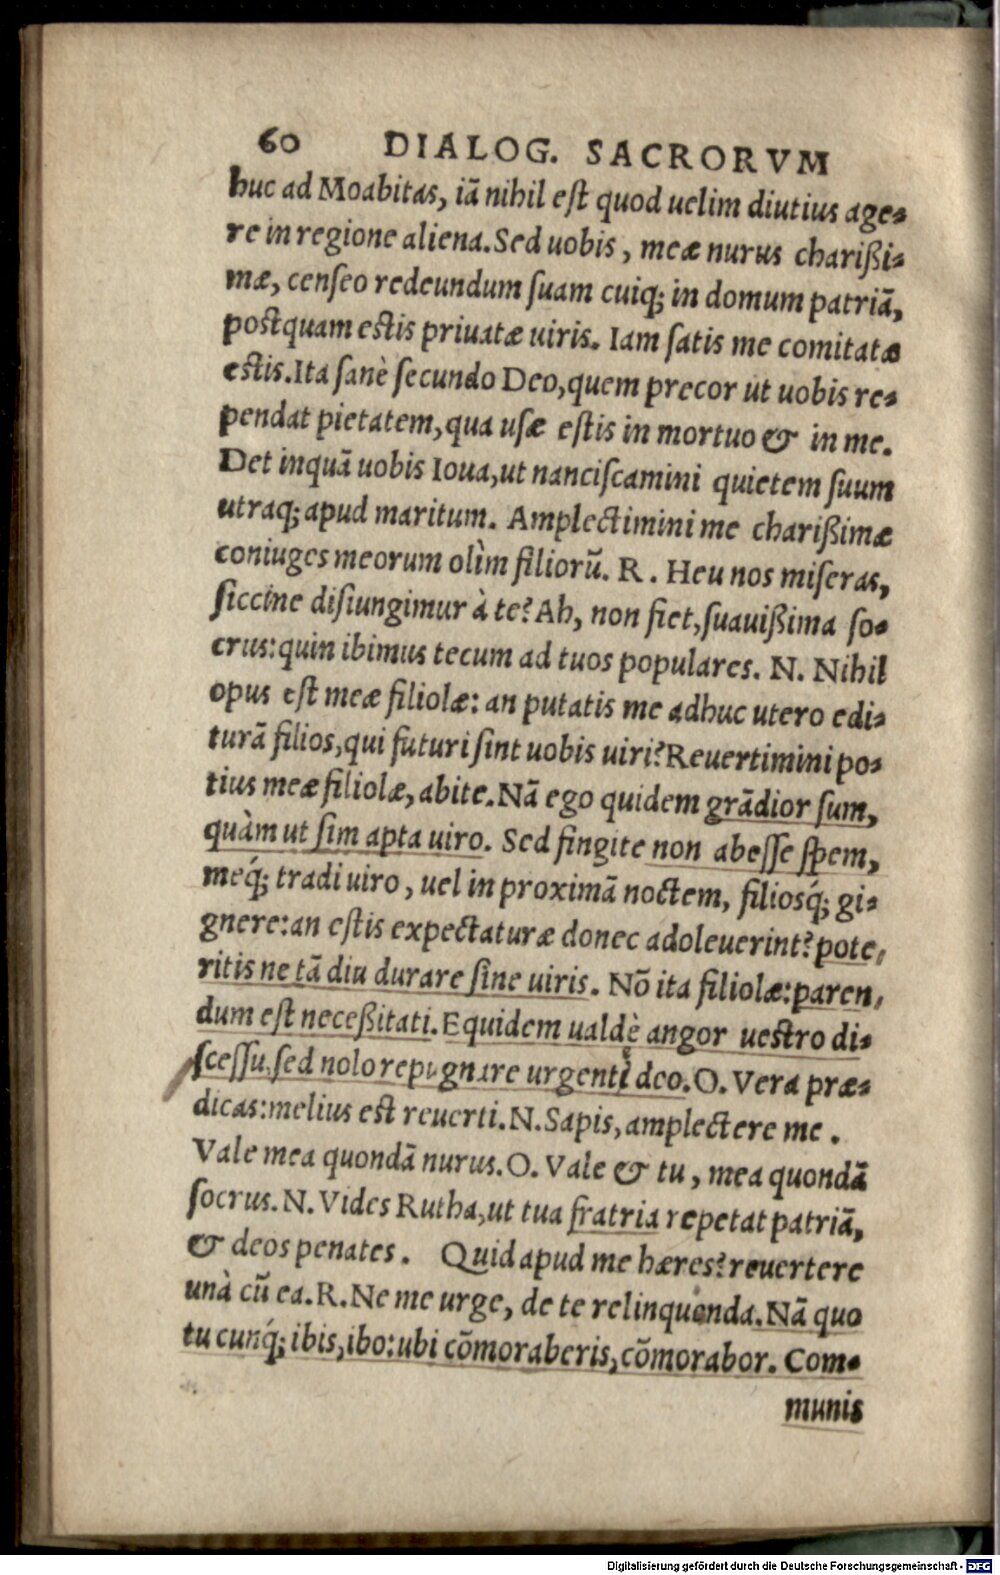 60 DIALOG. SACRORVM
huc ad Moabitas, iã nihil eſt quod uelim diutius age-
re in regione aliena. Sed uobis, meæ nurus charißi-
mæ, cenſeo redeundum ſuam cuiq; in domum patriã,
poſtquam eſtis priuatæ uiris. Iam ſatis me comitatæ
eſtis. Ita ſanè ſecundo Deo, quem precor ut uobis re-
pendat pietatem, qua uſæ eſtis in mortuo & in me.
Det inquã uobis Ioua, ut nanciſcamini quietem ſuum
utraq; apud maritum. Amplectimini me charißimæ
coniuges meorum olìm filiorũ. R. Heu nos miſeras,
ſiccine diſiungimur à te? Ah, non fiet, ſuauißima ſo-
crus: quin ibimus tecum ad tuos populares. N. Nihil
opus eſt meæ filiolæ: an putatis me adhuc utero edi-
turã filios, qui futuri ſint uobis uiri? Reuertimini po-
tius meæ filiolæ, abite. Nã ego quidem grãdior ſum,
quàm ut ſim apta uiro. Sed fingite non abeſſe ſpem,
meq́; tradi uiro, uel in proximã noctem, filiosq́; gi-
gnere: an eſtis expectaturæ donec adoleuerint? pote-
ritis ne tã diu durare ſine uiris. Nõ ita filiolæ: paren-
dum eſt neceßitati. Equidem ualdè angor ueſtro di-
ſceſſu, ſed nolo repugnare urgenti deo. O. Vera præ-
dicas: melius eſt reuerti. N. Sapis, amplectere me.
Vale mea quondã nurus. O. Vale & tu, mea quondã
ſocrus. N. Vides Rutha, ut tua fratria repetat patriã,
& deos penates. Quid apud me hæres? reuertere
unà cũ ea. R. Ne me urge, de te relinquenda. Nã quo
tu cunq́; ibis, ibo: ubi cõmoraberis, cõmorabor. Com-
munis
Digitalisierung gefördert durch die Deutsche Forschungsgemeinschaft - DFG